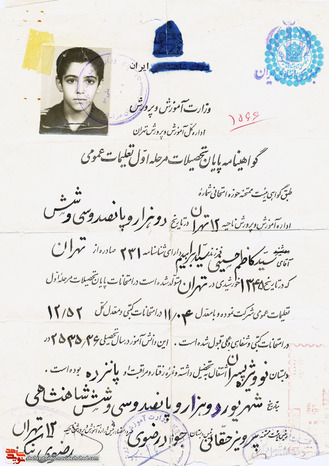 ایران
وزارت آموزش و پرورش
اداره کل آموزش و پرورش تهران
گواهینامه پایان تحصیلات مرحله اول تعلیمات عمومی
طبق گواهی هیئت ممتحنه حوزه امتحانی شماره
اداره آموزش و پرورش ناحیه ۱۲ تهران در تاریخ دو هزار و پانصد و سی و شش
آقای سید کاظم حسینی فرزند سید ابراهیم دارای شناسنامه ۲۳۱ صادره از تهران
که در تاریخ ۱۳۴۵ خورشیدی در تهران متولد شده است در امتحانات پایان تحصیلات مرحله اول
تعلیمات عمومی شرکت نموده و با معدل ۱۱/۰۴ امتحانات کتبی و معدل کل ۱۲/۵۲
در امتحانات کتبی و شفاهی و عملی قبول شده است. این دانش آموز در سال تحصیلی ۲۵۳۵/۳۶ در
دبستان نوورزش پسران اشتغال به تحصیل داشته و نمره رفتار و مراقبت او پانزده بوده است.
بتاریخ شهریور دو هزار و پانصد و سی و شش شاهنشاهی
پرویز حقانی
جواد رضوی
۱۲ تهران